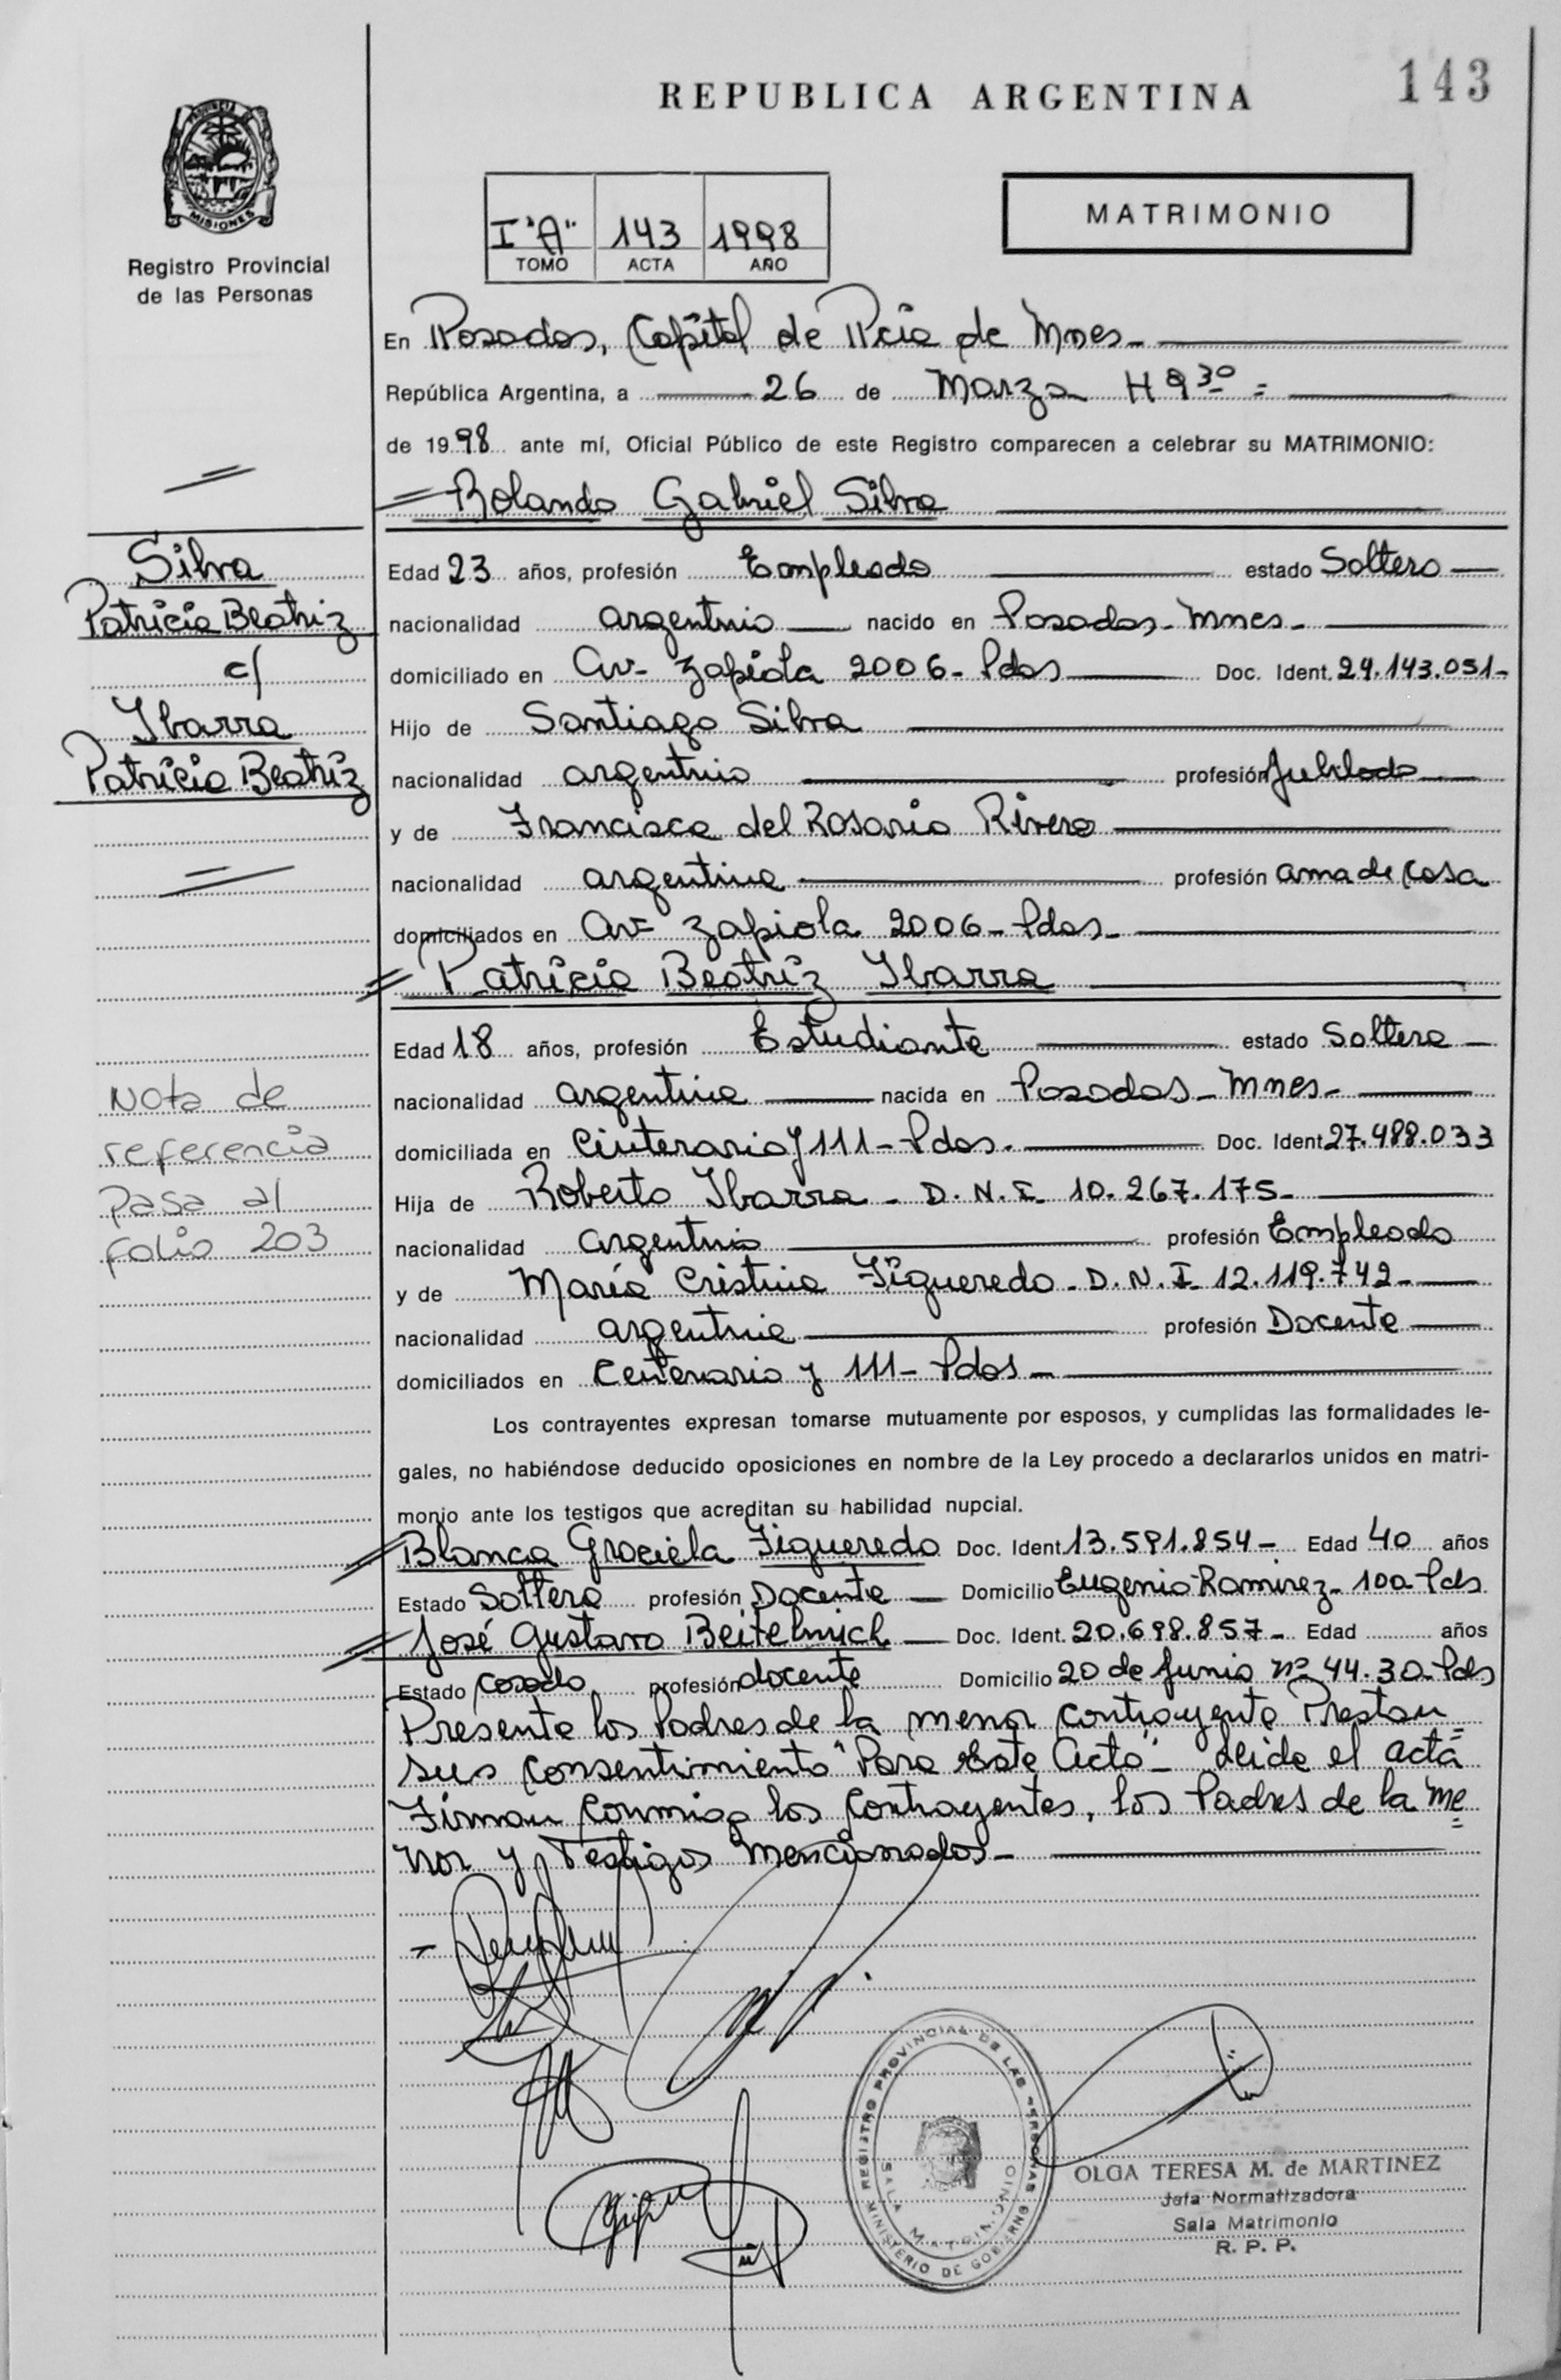 REPUBLICA ARGENTINA
143
MISIONES
Registro Provincial
de las Personas
I "A" 143 1998
TOMO ACTA AÑO
MATRIMONIO
En Posadas, Capital de Pcia de Mnes.
República Argentina, a 26 de Marzo H 9 30 =
de 1998 ante mí, Oficial Público de este Registro comparecen a celebrar su MATRIMONIO:
Rolando Gabriel Silva
Silva
Patricia Beatriz
c/
Ibarra
Patricia Beatriz
Edad 23 años, profesión Empleado estado Soltero
nacionalidad argentino nacido en Posadas - Mnes.
domiciliado en Av- Zapiola 2006 - Pdas Doc. Ident. 24.143.051-
Hijo de Santiago Silva
nacionalidad argentino profesión Jubilado
y de Francisca del Rosario Rivero
nacionalidad argentina profesión ama de Casa
domiciliados en Av= Zapiola 2006 - Pdas -
Patricia Beatriz Ibarra
Edad 18 años, profesión Estudiante estado Soltera
nacionalidad argentina nacida en Posadas - Mnes -
domiciliada en Centenario y 111 - Pdas. Doc. Ident 27.488.033
Hija de Roberto Ibarra - D.N.I. 10.267.175-
nacionalidad argentino profesión Empleado
y de María Cristina Figueredo - D.N.I. 12.119.742-
nacionalidad argentina profesión Docente
domiciliados en Centenario y 111 - Pdas -
Nota de
referencia
pasa al
folio 203
Los contrayentes expresan tomarse mutuamente por esposos, y cumplidas las formalidades le-
gales, no habiéndose deducido oposiciones en nombre de la Ley procedo a declararlos unidos en matri-
monio ante los testigos que acreditan su habilidad nupcial.
Blanca Graciela Figueredo Doc. Ident 13.591.854- Edad 40 años
Estado Soltera profesión Docente Domicilio Eugenio Ramirez - 100 Pds
José Gustavo Beitelmich Doc. Ident. 20.698.857- Edad años
Estado Casado profesión docente Domicilio 20 de Junio nº 44.30 Pds
Presente los Padres de la menor contrayente Prestan
sus consentimiento "Para Este Acto"- Leida el acta
Firman conmigo los contrayentes, los Padres de la me
nor y Testigos mencionados -
REGISTRO PROVINCIAL DE LAS PERSONAS
SALA MATRIMONIO
MINISTERIO DE GOBIERNO
OLGA TERESA M. de MARTINEZ
Jefa Normatizadora
Sala Matrimonio
R. P. P.